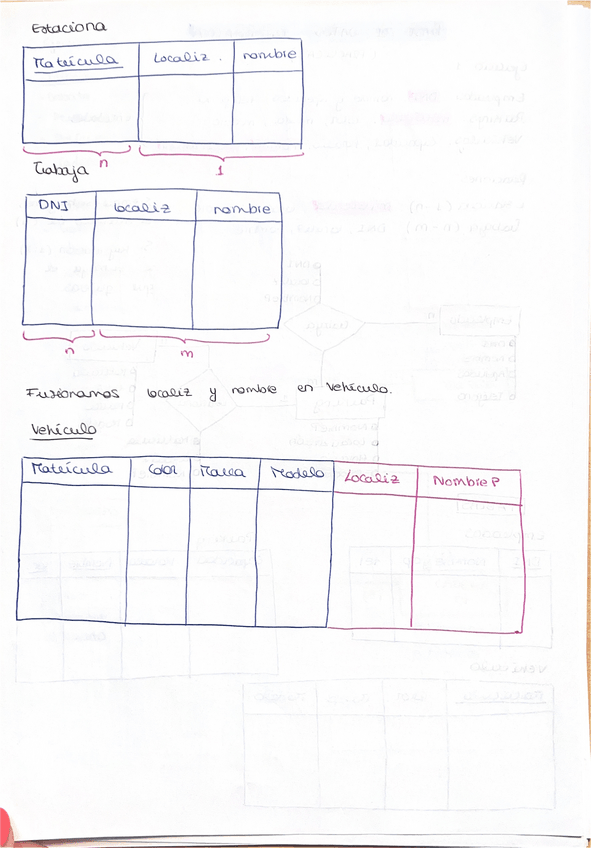 Estaciona
Matrícula Localiz. nombre
n 1
Trabaja
DNI Localiz nombre
n m
Fusionamos localiz y nombre en vehículo.
Vehículo
Matrícula Color Marca Modelo Localiz Nombre P